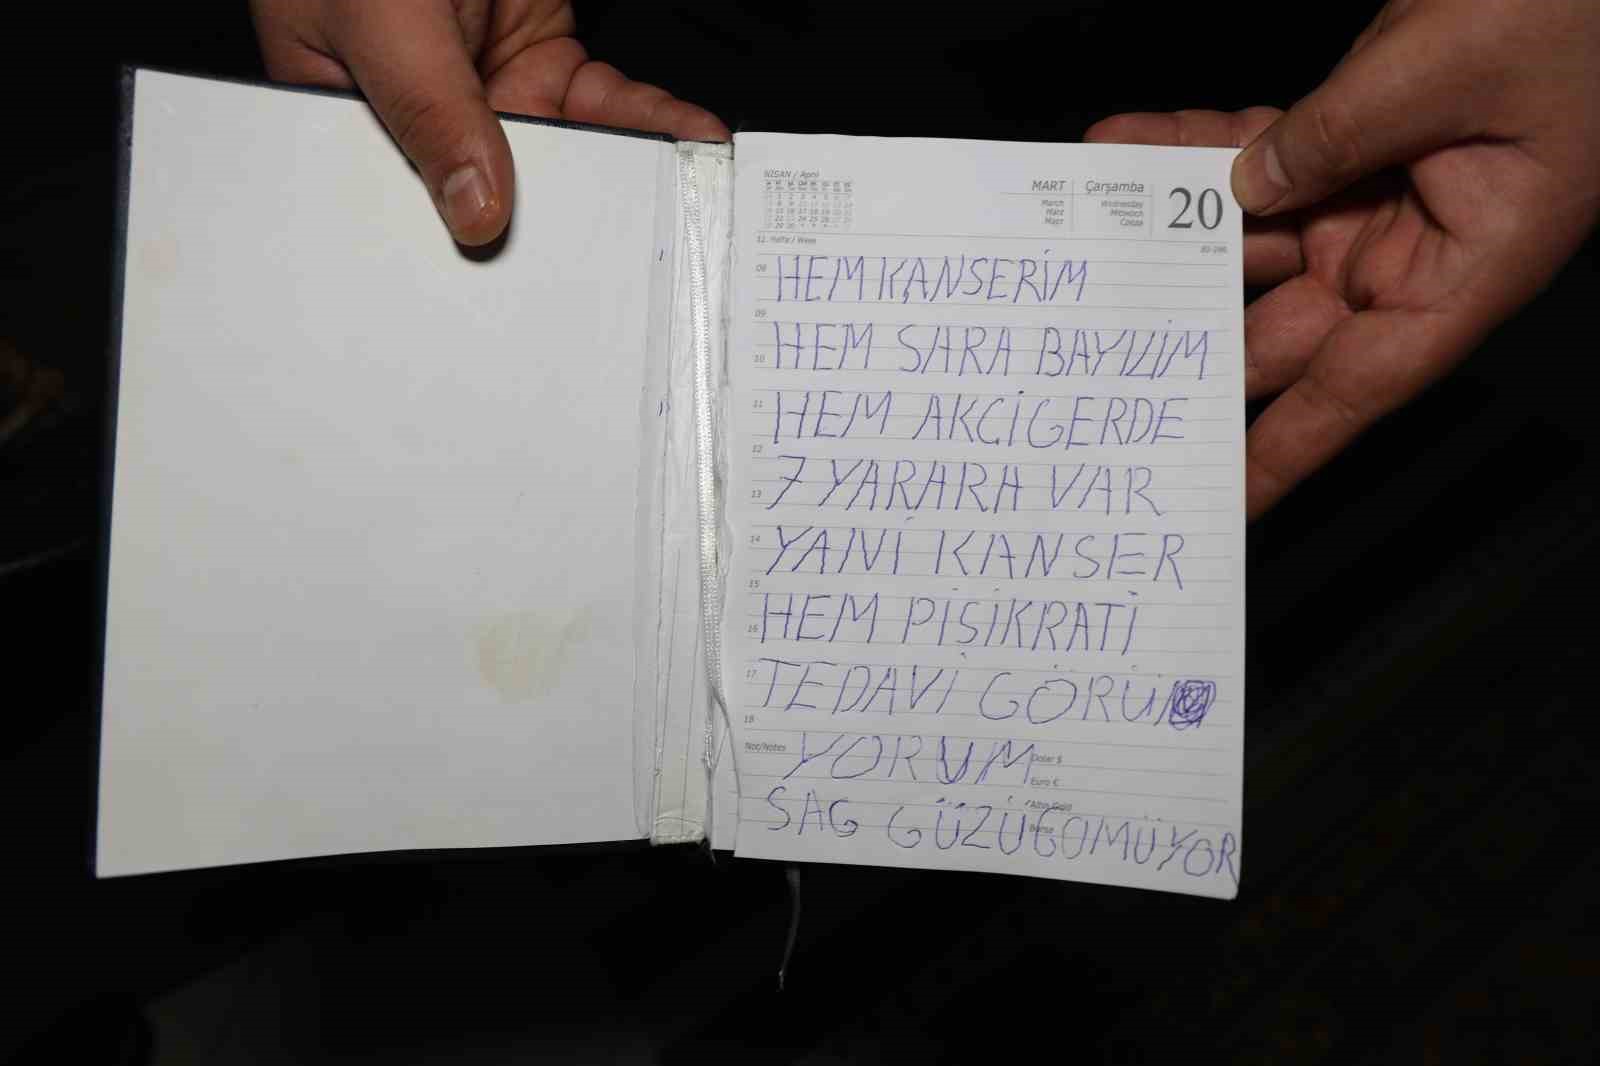 NİSAN / April
MART Çarşamba 20
March Wednesday
März Mittwoch
Март Среда
12. Hafta / Week
08 HEM KANSERİM
09
10 HEM SARA BAYILIM
11 HEM AKCİGERDE
12
13 7 YARARA VAR
14 YANİ KANSER
15
16 HEM PİSİKRATİ
17 TEDAVİ GÖRÜ
18
Not/Notes YORUM Dolar $
Euro €
Altın Gold
SAG GÜZÜGOMÜYOR
Borsa